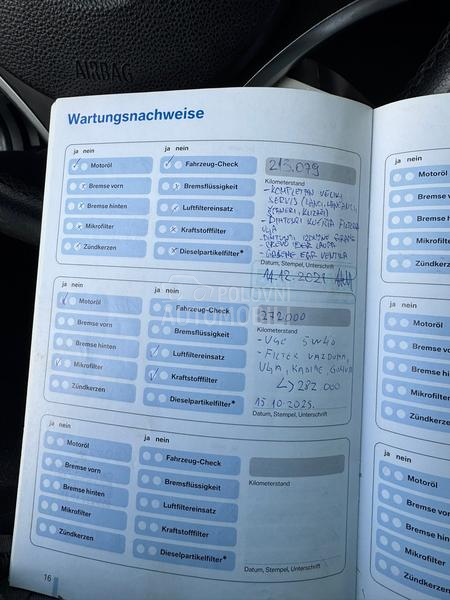 AIRBAG
Wartungsnachweise
ja nein
ja nein
Motoröl
Fahrzeug-Check
213.079
Kilometerstand
Bremse vorn
Bremsflüssigkeit
Bremse hinten
Luftfiltereinsatz
Mikrofilter
Kraftstofffilter
Zündkerzen
Dieselpartikelfilter*
- KOMPLETAN VELIKI
SERVIS (LANCI, LANČANICI,
ŠPANERI, KLIZAČI)
FILTERA
ULJA
EGR VENTILA
Datum, Stempel, Unterschrift
14.12.2021
POLOVNI
ja nein
ja nein
Motoröl
Fahrzeug-Check
272.000
Kilometerstand
Bremse vorn
Bremsflüssigkeit
Bremse hinten
Luftfiltereinsatz
Mikrofilter
Kraftstofffilter
Zündkerzen
Dieselpartikelfilter*
- ULJE 5W40
- FILTER VAZDUHA,
ULJA, KABINE, GORIVA
↳ 282.000
15.10.2025.
Datum, Stempel, Unterschrift
ja nein
ja nein
Motoröl
Fahrzeug-Check
Kilometerstand
Bremse vorn
Bremsflüssigkeit
Bremse hinten
Luftfiltereinsatz
Mikrofilter
Kraftstofffilter
Zündkerzen
Dieselpartikelfilter*
Datum, Stempel, Unterschrift
16
ja nein
Motoröl
Bremse vorn
Bremse hinten
Mikrofilter
Zündkerzen
ja nein
Motoröl
Bremse vorn
Bremse hinten
Mikrofilter
Zündkerzen
ja nein
Motoröl
Bremse vorn
Bremse hinten
Mikrofilter